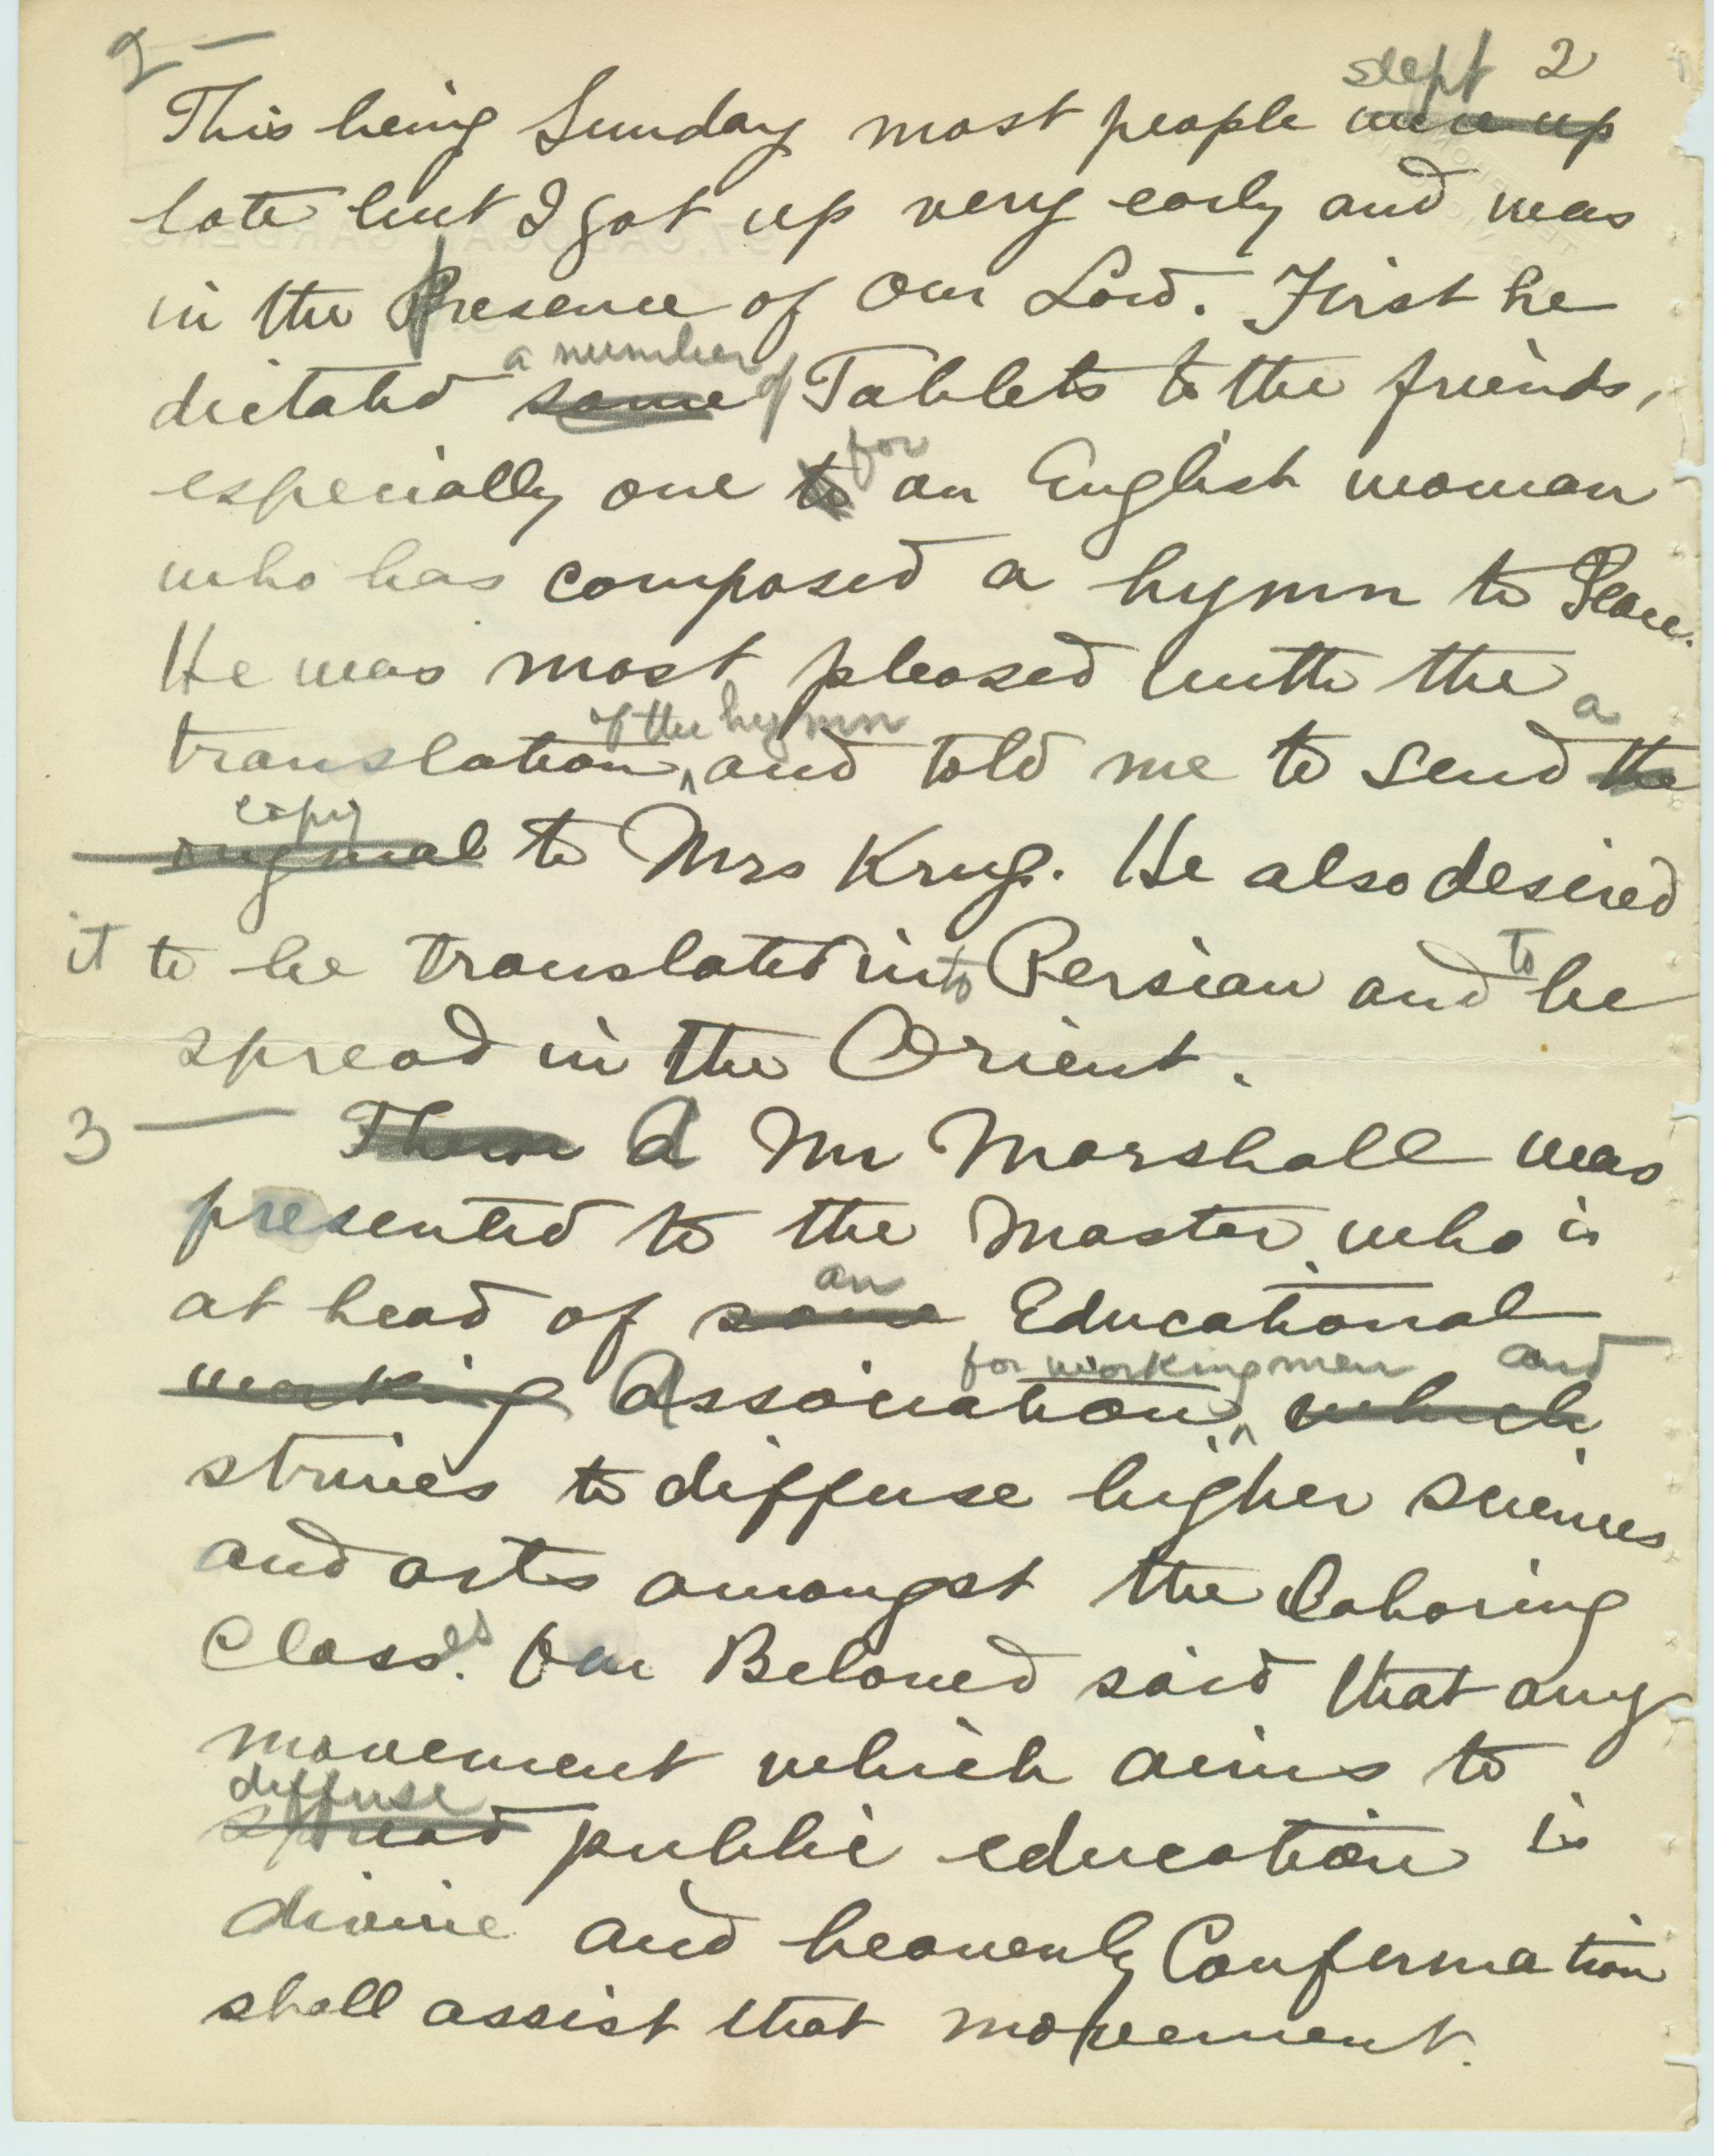 2 —
slept 2
This being Sunday most people were up
late but I got up very early and was
in the presence of Our Lord. First he
a number of
dictated some Tablets to the friends,
for
especially one to an English woman
who has composed a hymn to Peace.
He was most pleased with the a
of the hymn
translation, and told me to send the
copy
original to Mrs Krug. He also desired
it to be translated into Persian and to be
spread in the Orient.
3 — Then A Mr Marshall was
presented to the Master, who is
an
at head of some Educational
for workingmen and
working Association, which
strives to diffuse higher sciences
and arts amongst the Laboring
Classes. Our Beloved said that any
movement which aims to
diffuse
spread public education is
divine and heavenly Confermation
shall assist that movement.